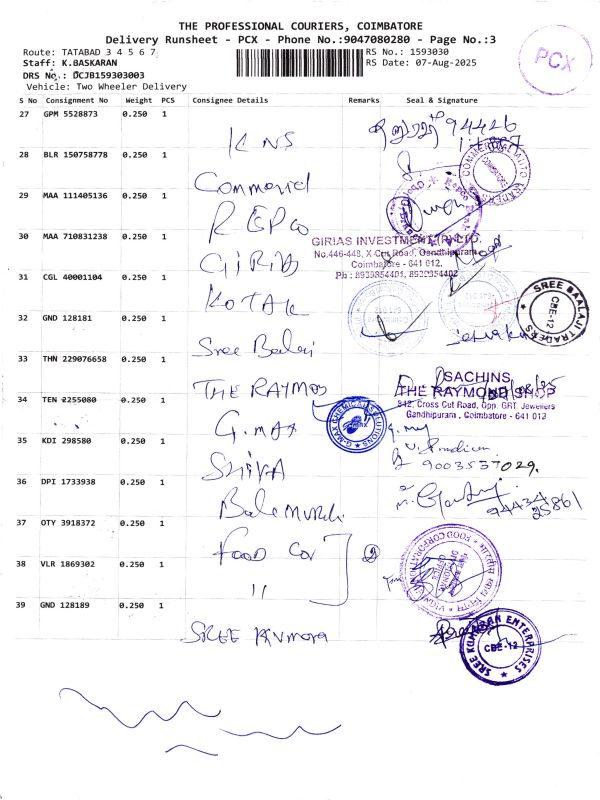 THE PROFESSIONAL COURIERS, COIMBATORE
Delivery Runsheet - PCX - Phone No.:9047080280 - Page No.:3
Route: TATABAD 3 4 5 6 7
RS No.: 1593030
Staff: K.BASKARAN
RS Date: 07-Aug-2025
DRS No.: DCJB159303003
Vehicle: Two Wheeler Delivery
PCX
S No Consignment No Weight PCS Consignee Details Remarks Seal & Signature
27 GPM 5528873 0.250 1
KNS 94426
28 BLR 150758778 0.250 1
Commercial
29 MAA 111405136 0.250 1
REPCO
30 MAA 710831238 0.250 1
GIRIAS
GIRIAS INVESTMENT (P) LTD.
No.446-448, X Cut Road, Gandhipuram
Coimbatore - 641 012.
Ph : 8939854401, 8939854402
31 CGL 40001104 0.250 1
KOTAK
32 GND 128181 0.250 1
Sree Balaji
SREE BAALAJI TRADERS
CBE-12
33 THN 229076658 0.250 1
THE RAYMOND
SACHINS
THE RAYMOND SHOP
312, Cross Cut Road, Opp. GRT Jewellers
Gandhipuram, Coimbatore - 641 012
34 TEN 2255080 0.250 1
G.MAX
G-MAX CHEMICAL SOLUTIONS
35 KDI 298580 0.250 1
SHIVA
9003537029.
36 DPI 1733938 0.250 1
Balamurali
94434
25861
37 OTY 3918372 0.250 1
Food Cor
2
FOOD CORPORATION
38 VLR 1869302 0.250 1
"
39 GND 128189 0.250 1
SREE KUMARA
SREE KUMARAN ENTERPRISES
CBE-12